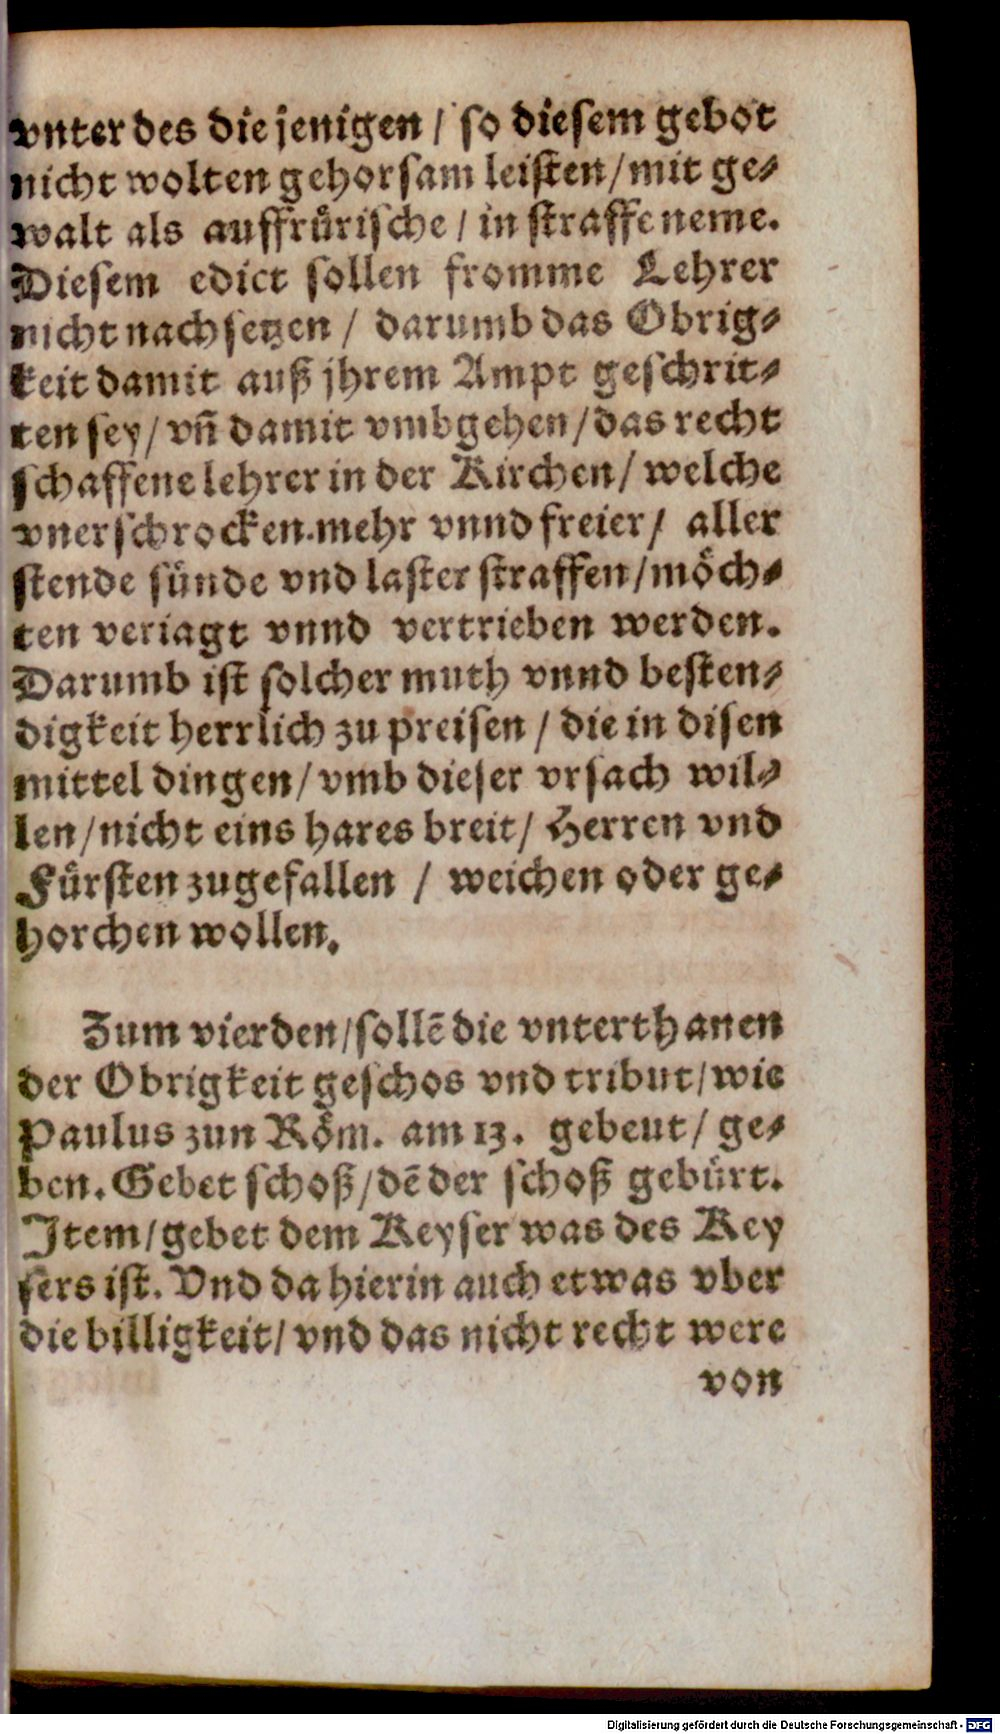 vnter des die jenigen / so diesem gebot
nicht wolten gehorsam leisten / mit ge⸗
walt als auffrůrische / in straffe neme.
Diesem edict sollen fromme Lehrer
nicht nachsetzen / darumb das Obrig⸗
keit damit auß jhrem Ampt geschrit⸗
ten sey / vñ damit vmbgehen / das recht
schaffene lehrer in der Kirchen / welche
vnerschrocken.mehr vnnd freier / aller
stende sünde vnd laster straffen / möch⸗
ten veriagt vnnd vertrieben werden.
Darumb ist solcher muth vnnd besten⸗
digkeit herrlich zu preisen / die in disen
mittel dingen / vmb dieser vrsach wil⸗
len / nicht eins hares breit / Herren vnd
Fůrsten zugefallen / weichen oder ge⸗
horchen wollen.
Zum vierden / sollē die vnterthanen
der Obrigkeit geschos vnd tribut / wie
Paulus zun Röm. am 13. gebeut / ge⸗
ben. Gebet schoß / dē der schoß gebürt.
Item / gebet dem Keyser was des Key
sers ist. Vnd da hierin auch etwas vber
die billigkeit / vnd das nicht recht were
von
Digitalisierung gefördert durch die Deutsche Forschungsgemeinschaft - DFG